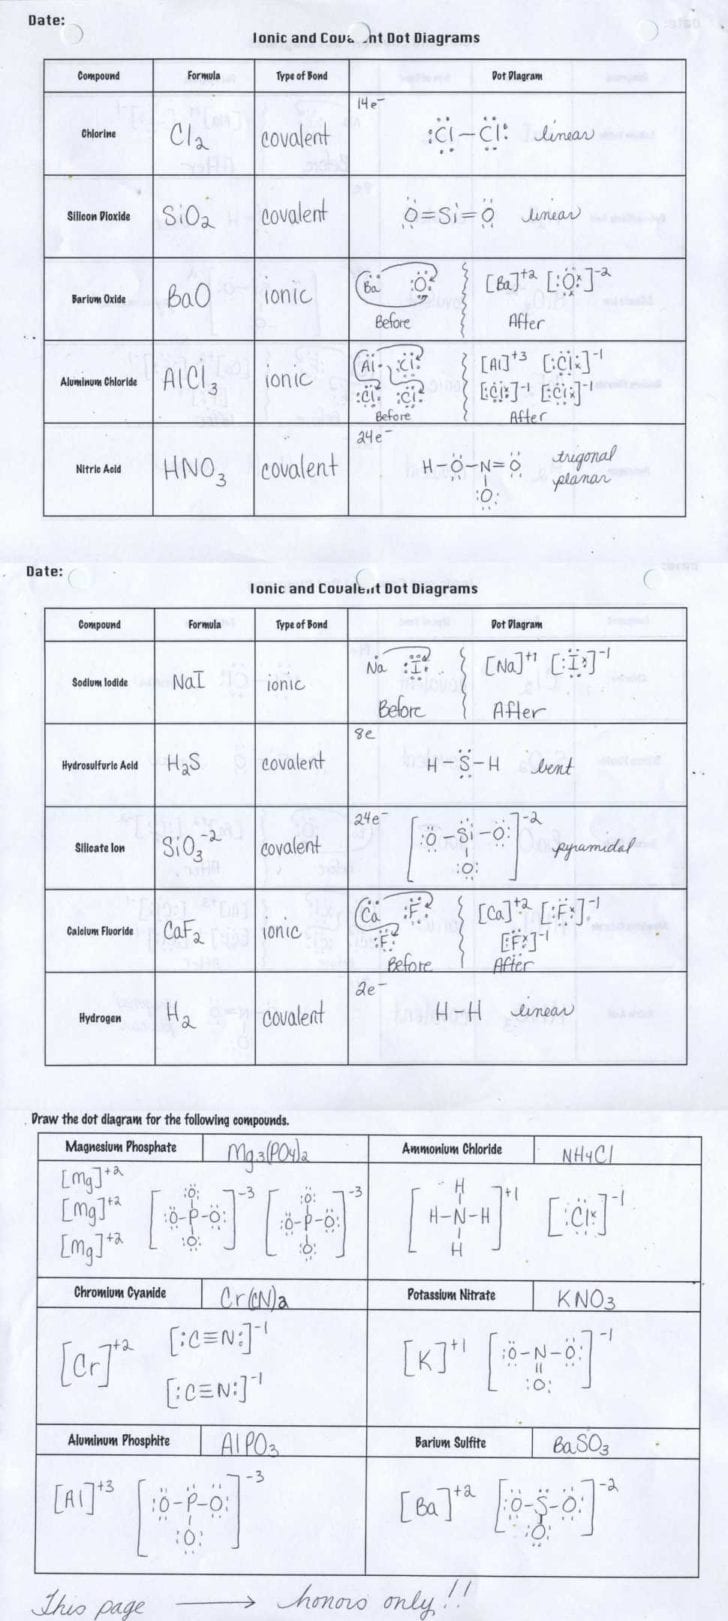 Date:
Ionic and Cova nt Dot Diagrams
Compound Formula Type of Bond Dot Diagram
14e⁻
Chlorine Cl₂ covalent :Cl–Cl: linear
Silicon Dioxide SiO₂ covalent O=Si=O linear
Barium Oxide BaO ionic Ba :O: [Ba]⁺² [:O:]⁻²
Before After
Aluminum Chloride AlCl₃ ionic Al :Cl: [Al]⁺³ [:Cl:]⁻¹
:Cl: :Cl: [:Cl:]⁻¹ [:Cl:]⁻¹
Before After
24e⁻
Nitric Acid HNO₃ covalent H–O–N=O trigonal
planar
:O:
Date:
Ionic and Covalent Dot Diagrams
Compound Formula Type of Bond Dot Diagram
Sodium Iodide NaI ionic Na :I: [Na]⁺¹ [:I:]⁻¹
Before After
8e
Hydrosulfuric Acid H₂S covalent H–S–H bent
24e⁻
Silicate Ion SiO₃⁻² covalent [:O–Si–O:]⁻² pyramidal
:O:
Calcium Fluoride CaF₂ ionic Ca :F: [Ca]⁺² [:F:]⁻¹
:F: [:F:]⁻¹
Before After
2e⁻
Hydrogen H₂ covalent H–H linear
Draw the dot diagram for the following compounds.
Magnesium Phosphate Mg₃(PO₄)₂ Ammonium Chloride NH₄Cl
[Mg]⁺² :O: :O: H
[Mg]⁺² [:O–P–O:]⁻³ [:O–P–O:]⁻³ [H–N–H]⁺¹ [:Cl:]⁻¹
[Mg]⁺² :O: :O: H
Chromium Cyanide Cr(CN)₂ Potassium Nitrate KNO₃
[Cr]⁺² [:C≡N:]⁻¹ [K]⁺¹ [:O–N–O:]⁻¹
[:C≡N:]⁻¹ :O:
Aluminum Phosphite AlPO₃ Barium Sulfite BaSO₃
[Al]⁺³ [:O–P–O:]⁻³ [Ba]⁺² [:O–S–O:]⁻²
:O: :O:
This page → honors only!!